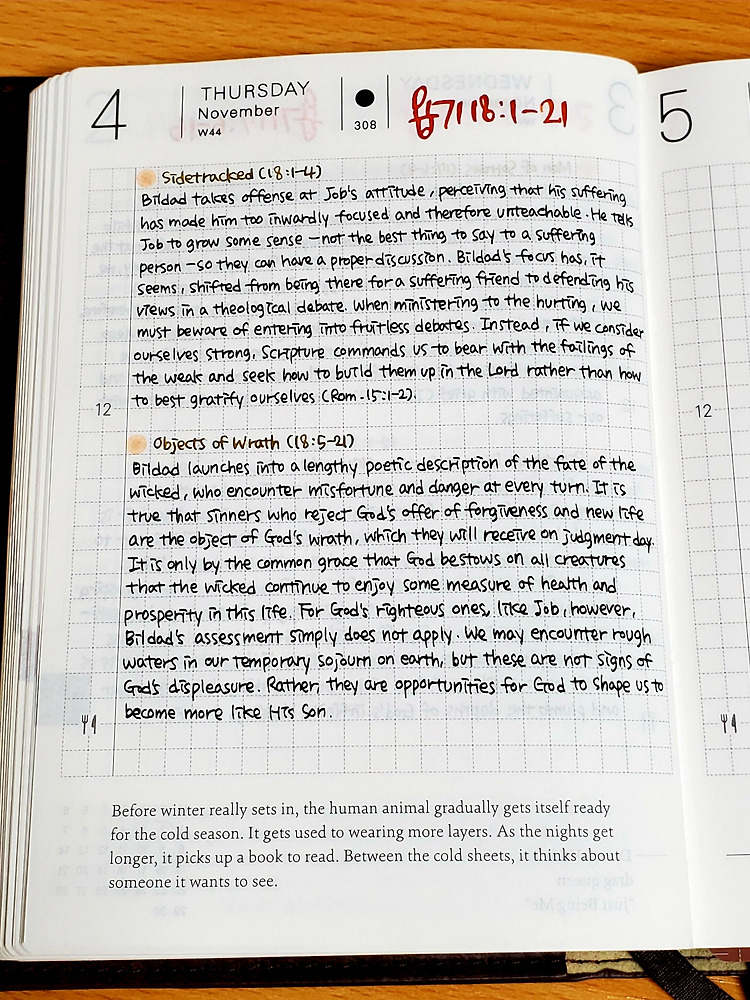 4
THURSDAY
November
W44
308
욥기 18:1-21
5
Sidetracked (18:1-4)
Bildad takes offense at Job's attitude, perceiving that his suffering
has made him too inwardly focused and therefore unteachable. He tells
Job to grow some sense - not the best thing to say to a suffering
person - so they can have a proper discussion. Bildad's focus has, it
seems, shifted from being there for a suffering friend to defending his
views in a theological debate. When ministering to the hurting, we
must beware of entering into fruitless debates. Instead, if we consider
ourselves strong, Scripture commands us to bear with the failings of
the weak and seek how to build them up in the Lord rather than how
to best gratify ourselves (Rom. 15:1-2).
12
12
Objects of Wrath (18:5-21)
Bildad launches into a lengthy poetic description of the fate of the
wicked, who encounter misfortune and danger at every turn. It is
true that sinners who reject God's offer of forgiveness and new life
are the object of God's wrath, which they will receive on judgment day.
It is only by the common grace that God bestows on all creatures
that the wicked continue to enjoy some measure of health and
prosperity in this life. For God's righteous ones, like Job, however,
Bildad's assessment simply does not apply. We may encounter rough
waters in our temporary sojourn on earth, but these are not signs of
God's displeasure. Rather, they are opportunities for God to shape us to
become more like His Son.
Before winter really sets in, the human animal gradually gets itself ready
for the cold season. It gets used to wearing more layers. As the nights get
longer, it picks up a book to read. Between the cold sheets, it thinks about
someone it wants to see.